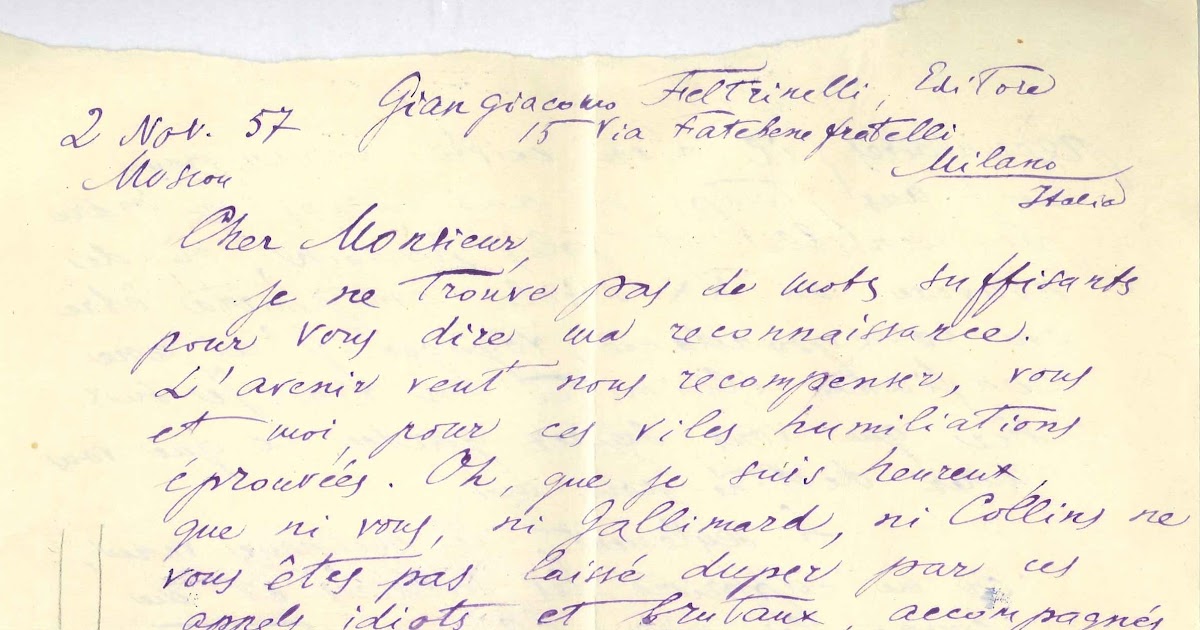 2 Nov. 57
Moscou
Giangiacomo Feltrinelli, Editore
15 via Fatebenefratelli
Milano
Italia
Cher Monsieur,
je ne trouve pas de mots suffisants
pour vous dire ma reconnaissance.
L'avenir veut nous recompenser, vous
et moi, pour ces viles humiliations
éprouvées. Oh, que je suis heureux,
que ni vous, ni Gallimard, ni Collins ne
vous êtes pas laissé duper par ces
appels idiots et brutaux, accompagnés